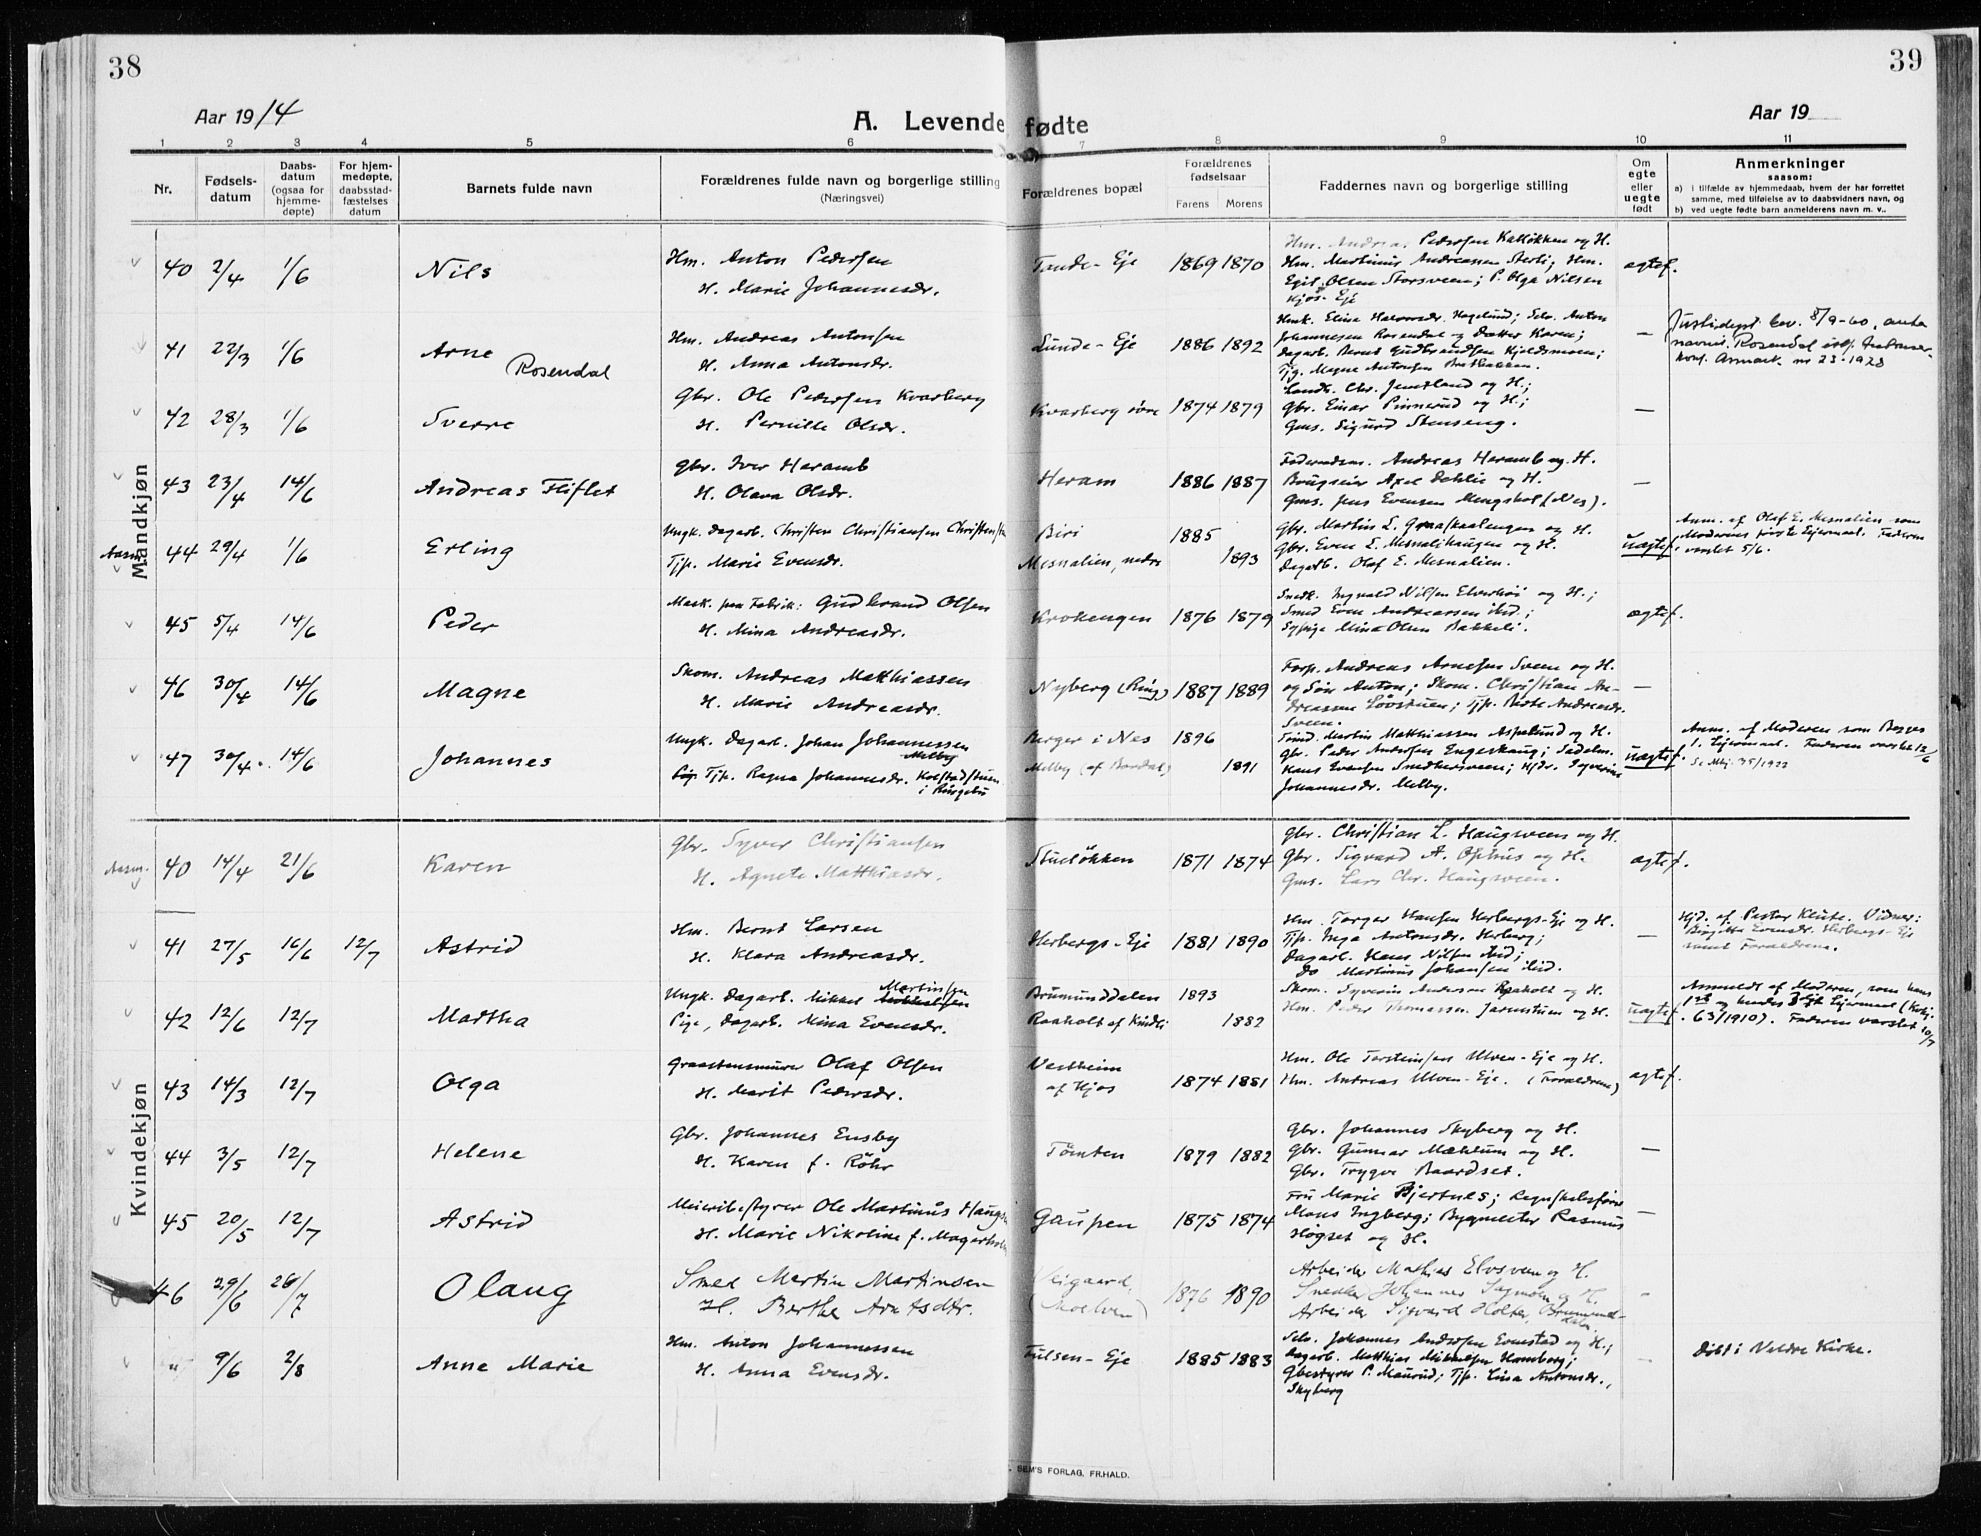 38
39
Aar 1914
A. Levende fødte
Aar 19
1 2 3 4 5 6 7 8 9 10 11
Nr.
Fødsels-datum
Daabs-datum (ogsaa for hjemme-døpte)
For hjem-medøpte, daabsstad-fæstelses datum
Barnets fulde navn
Forældrenes fulde navn og borgerlige stilling (Næringsvei)
Forældrenes bopæl
Forældrenes fødselsaar
Farens Morens
Faddernes navn og borgerlige stilling
Om egte eller uegte født
Anmerkninger
saasom:
a) i tilfælde av hjemmedaab, hvem der har forrettet samme, med tilføielse av to daabsvidners navn, og
b) ved uegte fødte barn anmelderens navn m. v..
Mandkjøn
40 2/4 1/6 Nils
Hm. Anton Pedersen
H. Marie Johannesdr.
Tande-Eje 1869 1870
Hm. Andreas Pedersen Kalløkken og H.
Hm. Martinus Andreassen Sterli; Hm.
Egil Olsen Storsveen; P. Olga Nilsen
Kjøs-Eje
ægtef.
41 22/3 1/6 Arne
Rosendal
Hm. Andreas Antonsen
H. Anna Antonsdr.
Lunde-Eje 1886 1892
Hmk. Eline Halvorsdr. Hagelund; Selv. Anton
Johannesen Rosendal og Datter Karen;
Dagarb. Bernt Gudbrandsen Kjeldsmoen;
Tjg. Magne Antonsen Brolbakken.
—
Justisdept. bev. 8/9-60, anta
navnet Rosendal
42 28/3 1/6 Sverre
Gbr. Ole Pedersen Kvarberg
H. Pernille Olsdr.
Kvarberg øvre 1874 1879
Landh. Chr. Jemtland og H.;
Gbr. Einar Pinnerud og H.;
Gms. Sigurd Stenseng.
—
43 23/4 14/6 Andreas Fliflet
Gbr. Iver Heramb
H. Olava Olsdr.
Heram 1886 1887
Føderaadsm. Andreas Heramb og H.
Brugseier Axel Dehlie og H.
Gms. Jens Evensen Mengshol (Nes).
—
44 29/4 1/6 Erling
Ungk. Dagarb. Christen Christiansen
Tjp. Marie Evensdr.
Biri 1885
Mesnalien, nedre 1893
Gbr. Martin L. Graaskaalengen og H.
Gbr. Even E. Mesnalihaugen og H.
Dagarb. Olaf E. Mesnalien.
uægtef.
Anm. af Olaf E. Mesnalien som
Moderens første Lejermaal. Faderen
varslet 5/6.
45 5/4 14/6 Peder
Mask. paa Fabrik: Gudbrand Olsen
H. Mina Andreasdr.
Krokengen 1876 1879
Snedk. Ingvald Nilsen Elverhøi og H.;
Smed Even Andreassen ibid.;
Sypige Mina Olsen Bakkeli.
ægtef.
46 30/4 14/6 Magne
Skom. Andreas Matthiassen
H. Marie Andreasdr.
Nyberg (Ring) 1887 1889
Forp. Andreas Arnesen Sveen og H.
og Søn Anton; Skom. Christian An-
dreassen Løvstuen; Tjp. Berte Andreasdr.
Sveen.
—
47 30/4 14/6 Johannes
Ungk. Dagarb. Johan Johannessen
Melby
Pig. Tjp. Ragna Johannesdr. Kolstadstuen
i Ringebu
Berger i Nes 1896
Melby (af Bordal) 1891
Smed. Martin Matthiassen Aspelund og H.
Gbr. Peder Andersen Engeskaug; Sadelm.
Hans Evensen Snekkersveen; Hjdr. Syverine
Johannesdr. Melby.
uægtef.
Anm. af Moderen som Begges
1. Lejermaal. Faderen varslet 12/6
Kvindekjøn
40 14/4 21/6 Karen
Gbr. Syver Christiansen
H. Agnete Matthiasdr.
Stueløkken 1871 1874
Gbr. Christian L. Haugsveen og H.
Gbr. Sigvard A. Ophus og H.
Gms. Lars Chr. Haugsveen.
ægtef.
41 27/5 16/6 12/7 Astrid
Hm. Bernt Larsen
H. Klara Andreasdr.
Herbergs-Eje 1881 1890
Hm. Torger Hansen Herbergs-Eje og H.
Tjp. Inga Antonsdr. Herberg;
Dagarb. Hans Nilsen ibid;
Do Martinus Johansen ibid.
—
Hjd. af Pastor Klute. Vidner:
Birgitte Evensdr. Herbergs-Eje
samt Forældrene.
42 12/6 12/7 Martha
Ungk. Dagarb. Mikkel Martinsen
Pige, Dagarb. Mina Evensdr.
Brumunddalen 1893
Raaholt af Kindli 1882
Skom. Syverin Andersen Raaholt og H.
Hm. Peder Thomassen Jarnstuen og H.
uægtef.
Anmeldt af Moderen, som hans
1ste og hendes 3die Lejermaal (Kbkj.
63/1910). Faderen varslet 10/7
43 14/3 12/7 Olga
Graastensmurer Olaf Olsen
H. Marit Pedersdr.
Vestheim
af Kjos 1874 1881
Hm. Ole Torsteinsen Ulven-Eje og H.
Hm. Andreas Ulven-Eje. (Forældrene)
ægtef.
44 3/5 12/7 Helene
Gbr. Johannes Ensby
H. Karen f. Røhr
Tømten 1879 1882
Gbr. Johannes Skyberg og H.
Gbr. Gunnar Mæhlum og H.
Gbr. Trygve Baardset.
—
45 20/5 12/7 Astrid
Meieribestyrer Ole Martinus
H. Marie Nikoline f.
Gaupen 1875 1874
Fru Marie Bjertnes; Regnskabsfører
Mons Ingberg; Bygmester Rasmus
Høgset og H.
—
46 29/6 26/7 Olaug
Smed Martin Martinsen
H. Berthe Arntsdtr.
Veigaard
(Moelven) 1876 1890
Arbeider Mathias Elvsveen og H.
Snedker Johannes
Arbeider Sigvard Holter, Brumund-
dalen
9/6 2/8 Anne Marie
Hm. Anton Johannessen
H. Anna Evensdr.
Fulsen-Eje 1885 1883
Selv. Johannes Andersen Evenstad og H.;
Dagarb. Matthias Mikkelsen Hamberg;
Gbestyrer P. Maurud; Tjp. Lina Antonsdr.,
Skyberg
—
Døbt i Veldre Kirke.
SEM'S FORLAG, FR.HALD.